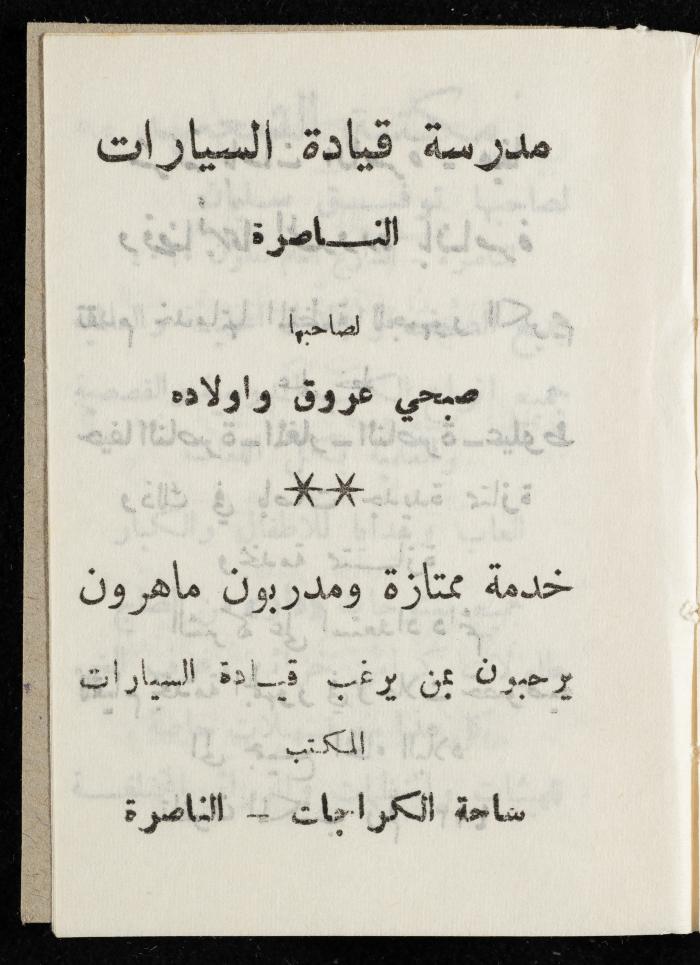 مدرسة قيادة السيارات
الناصرة
لصاحبها
صبحي عروق واولاده
خدمة ممتازة ومدربون ماهرون
يرحبون بمن يرغب قيادة السيارات
المكتب
ساحة الكراجات - الناصرة